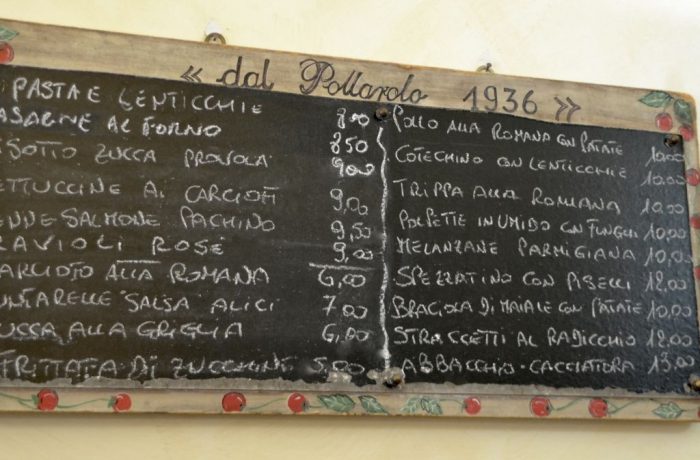 « dal Pollarolo 1936 »
PASTA E LENTICCHIE 8,00
ASAGNE AL FORNO 8,50
SOTTO ZUCCA PROVOLA 9,00
ETTUCCINE AI CARCIOFI 9,00
ENNE SALMONE PACHINO 9,50
RAVIOLI ROSE 9,00
ARCIOFO ALLA ROMANA 6,00
UNTARELLE SALSA ALICI 7,00
UCCA ALLA GRIGLIA 6,00
FRITTATA DI ZUCCHINE 5,00
POLLO ALLA ROMANA CON PATATE 10,00
COTECHINO CON LENTICCHIE 10,00
TRIPPA ALLA ROMANA 10,00
POLPETTE IN UMIDO CON FUNGHI 10,00
MELANZANE PARMIGIANA 10,00
SPEZZATINO CON PISELLI 12,00
BRACIOLA DI MAIALE CON PATATE 10,00
STRACCETTI AL RADICCHIO 12,00
ABBACCHIO - CACCIATORA 13,00